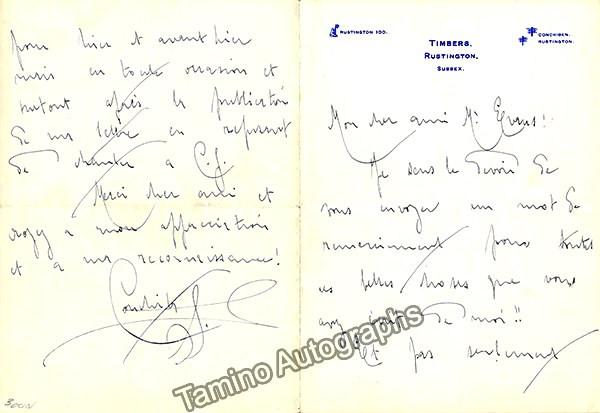 RUSTINGTON 100.
TIMBERS,
RUSTINGTON,
SUSSEX.
CONCHIBEN,
RUSTINGTON.
Mon cher ami Mr Evans!
Je sens le devoir de
vous envoyer un mot de
remerciement pour toutes
ces belles choses que vous
avez de moi!!
Et pas seulement
pour hier et avant hier
mais en toute occasion et
surtout après la publication
de ma lettre en refusant
de chanter a C. G.
Merci cher ami et
croyez a mon appreciation
et a ma reconnaissance!
Conchita
Tamino Autographs